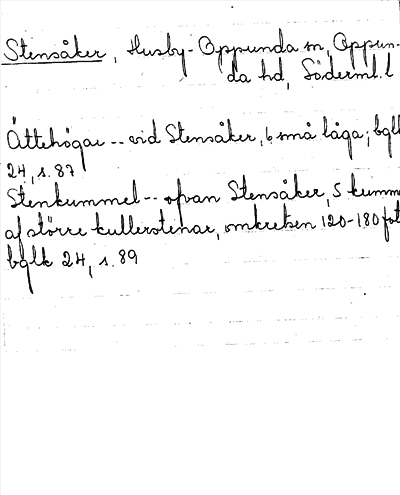 Stensåker, Husby-Oppunda sn, Oppun-
da hd, Söderml. l
Ättehögar -- vid Stensåker, 6 små låga; bglk
24, s. 87
Stenkummel -- ofvan Stensåker, 5 kumm
af större kullerstenar, omkretsen 120-180 fot
bglk 24, s. 89